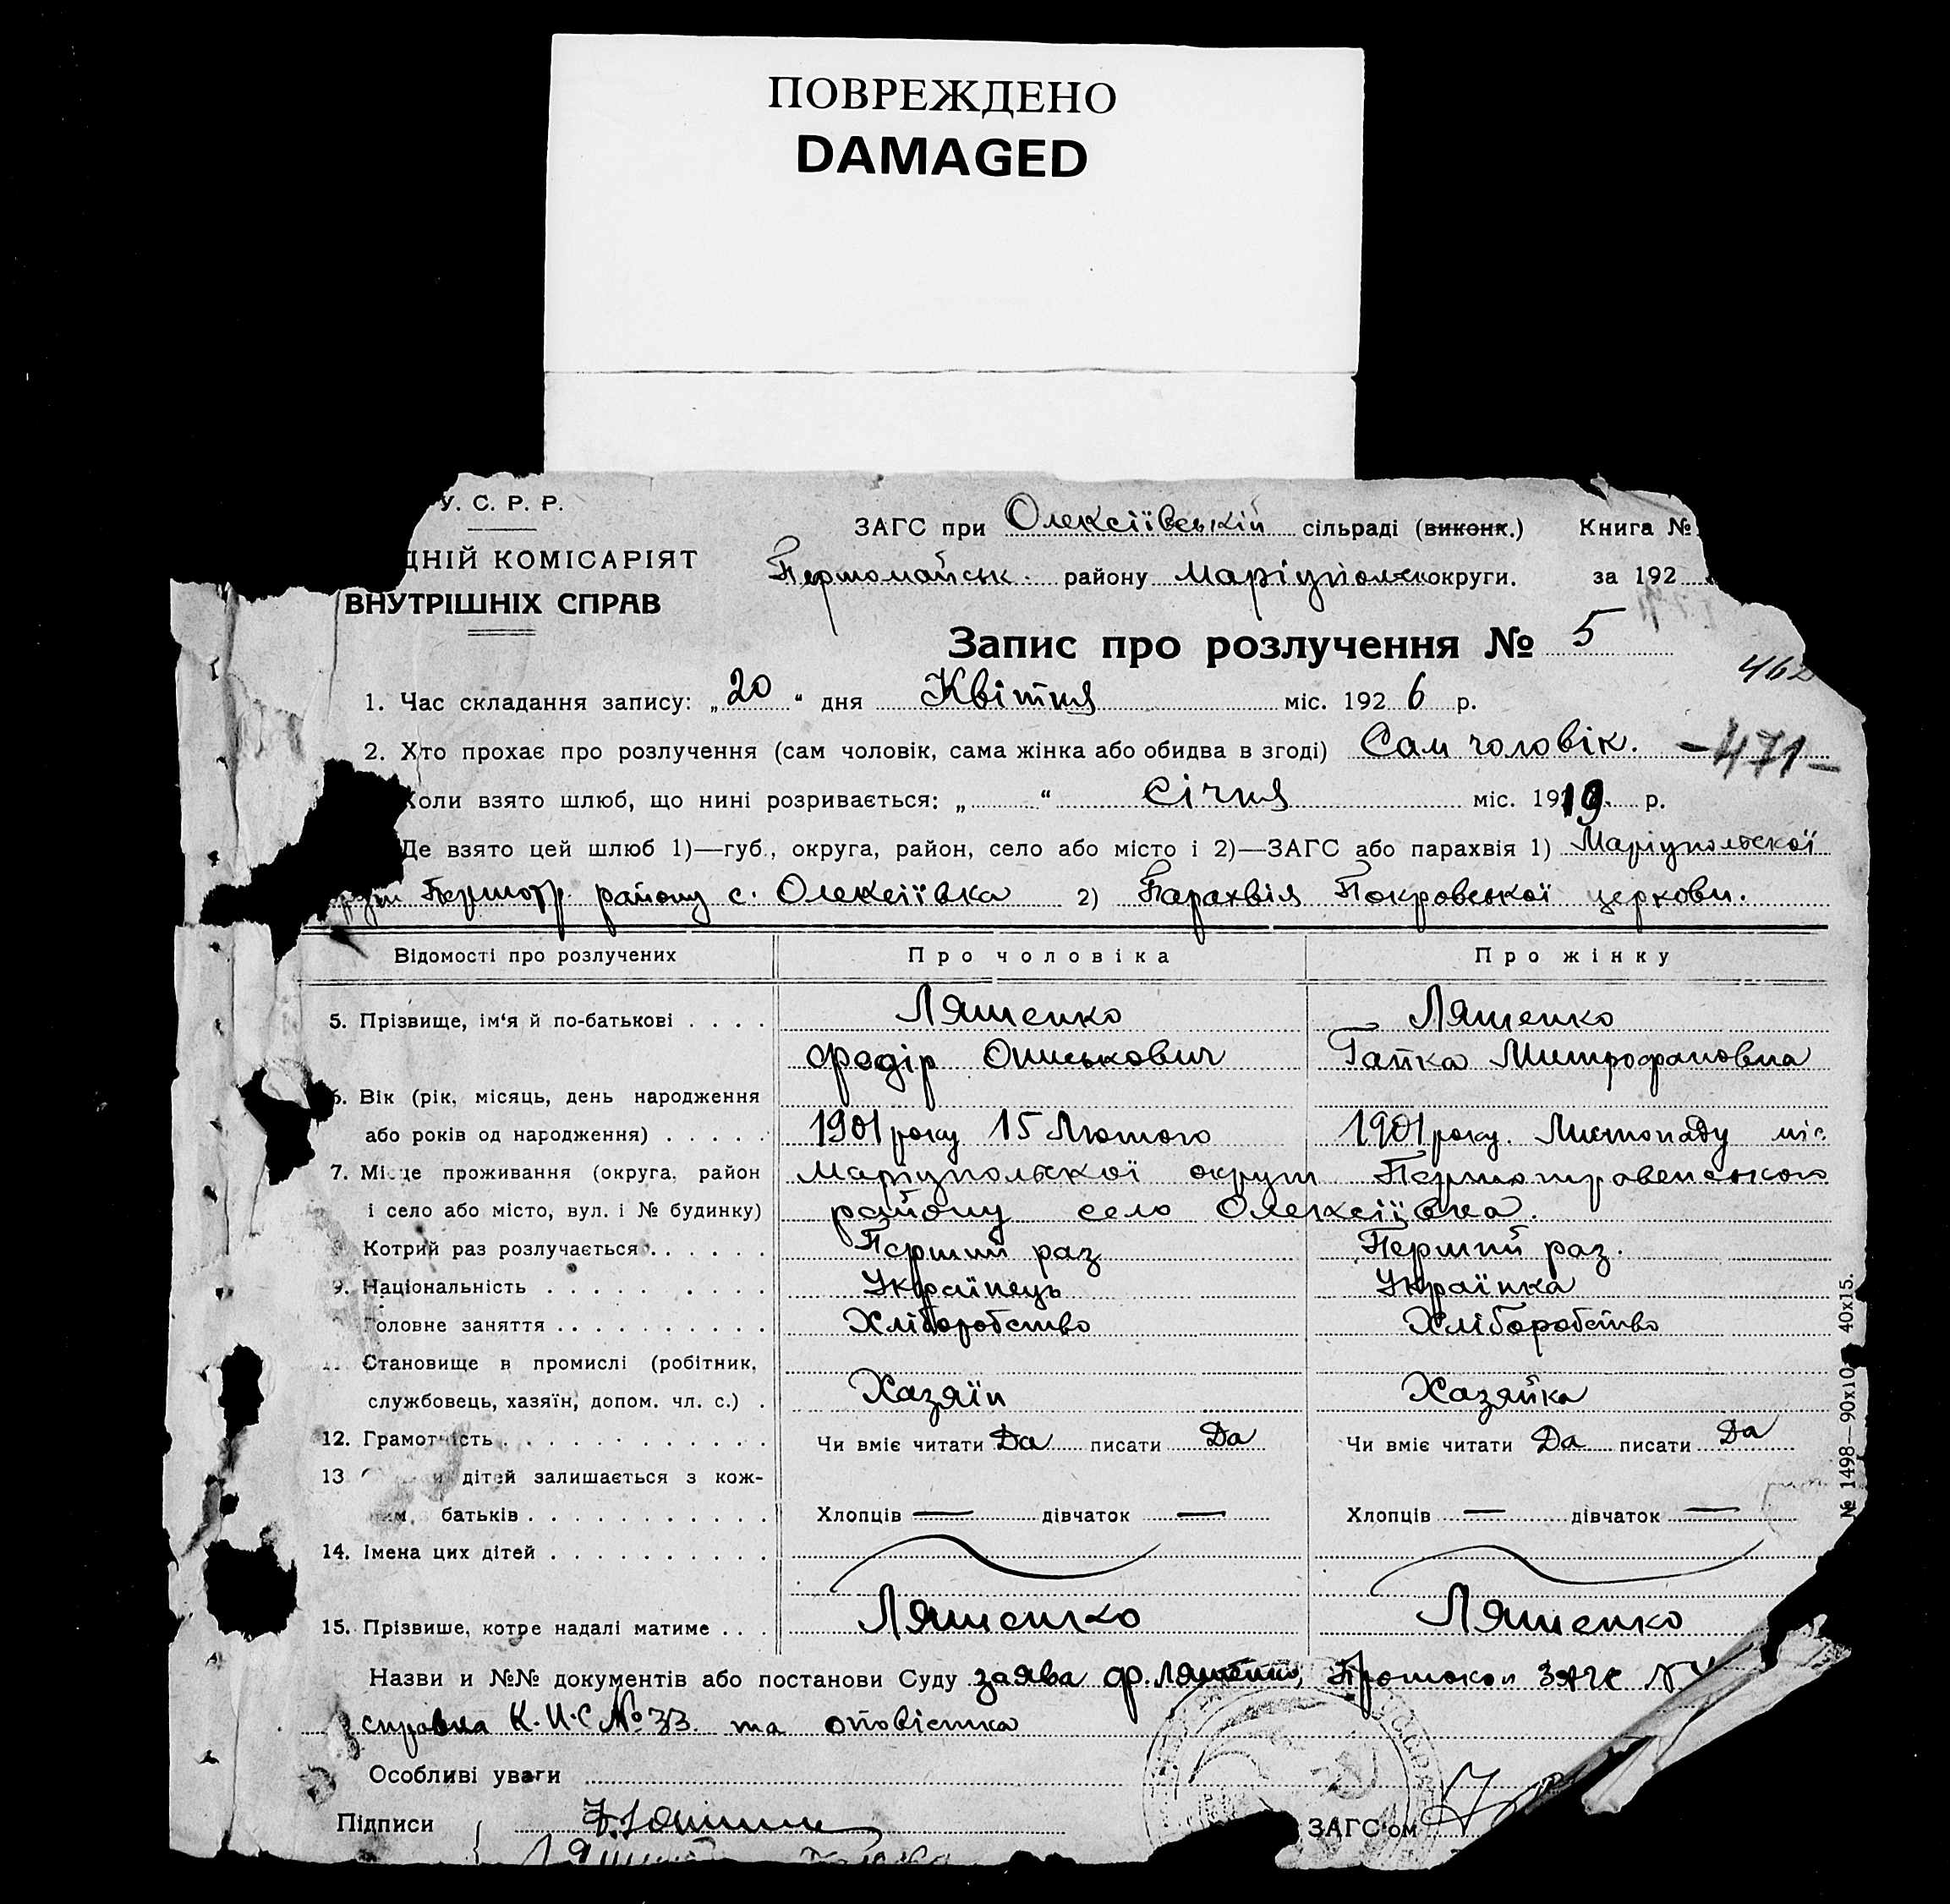 ПОВРЕЖДЕНО
DAMAGED
У. С. Р. Р.
ДНІЙ КОМІСАРІЯТ
ВНУТРІШНІХ СПРАВ
ЗАГС при Олексіївській сільраді (виконк.) Книга №
Первомайськ. району Маріупольск округи. за 192
Запис про розлучення № 5
462
1. Час складання запису: „20“ дня Квітня міс. 1926 р.
2. Хто прохає про розлучення (сам чоловік, сама жінка або обидва в згоді) Сам чоловік. -471-
Коли взято шлюб, що нині розривається: „ “ Січня міс. 1919. р.
Де взято цей шлюб 1)—губ., округа, район, село або місто і 2)—ЗАГС або парахвія 1) Маріупольскої
району с. Олексіївка 2) Парахвія Покровської церкови.
Відомості про розлучених Про чоловіка Про жінку
5. Прізвище, ім‘я й по-батькові . . . . Ляшенко Ляшенко
Федір Ониськович Гапка Митрофановна
6. Вік (рік, місяць, день народження
або років од народження) . . . . . 1901 року 15 Лютого 1901 року. Листопаду міс
7. Місце проживання (округа, район Маріупольскої округи Першотравенського
і село або місто, вул. і № будинку) району село Олексіївка.
Котрий раз розлучається . . . . . . Перший раз Перший раз.
9. Національність . . . . . . . . . Українець Українка
Головне заняття . . . . . . . . . . Хліборобство Хліборобство
Становище в промислі (робітник,
службовець, хазяїн, допом. чл. с.) . Хазяїн Хазяйка
12. Грамотність . . . . . . . . . . . Чи вміє читати Да писати Да Чи вміє читати Да писати Да
13. дітей залишається з кож-
батьків . . . . . . . . . . . Хлопців — дівчаток — Хлопців — дівчаток —
14. Імена цих дітей . . . . . . . . . .
15. Прізвише, котре надалі матиме . . . Ляшенко Ляшенко
Назви и №№ документів або постанови Суду заява Ф. Ляшенко, Протокол ЗАГС №
справка К.Н.С №33 та оповістка
Особливі уваги
Підписи ЗАГС‘ом
№ 1498—90х10 40х15.